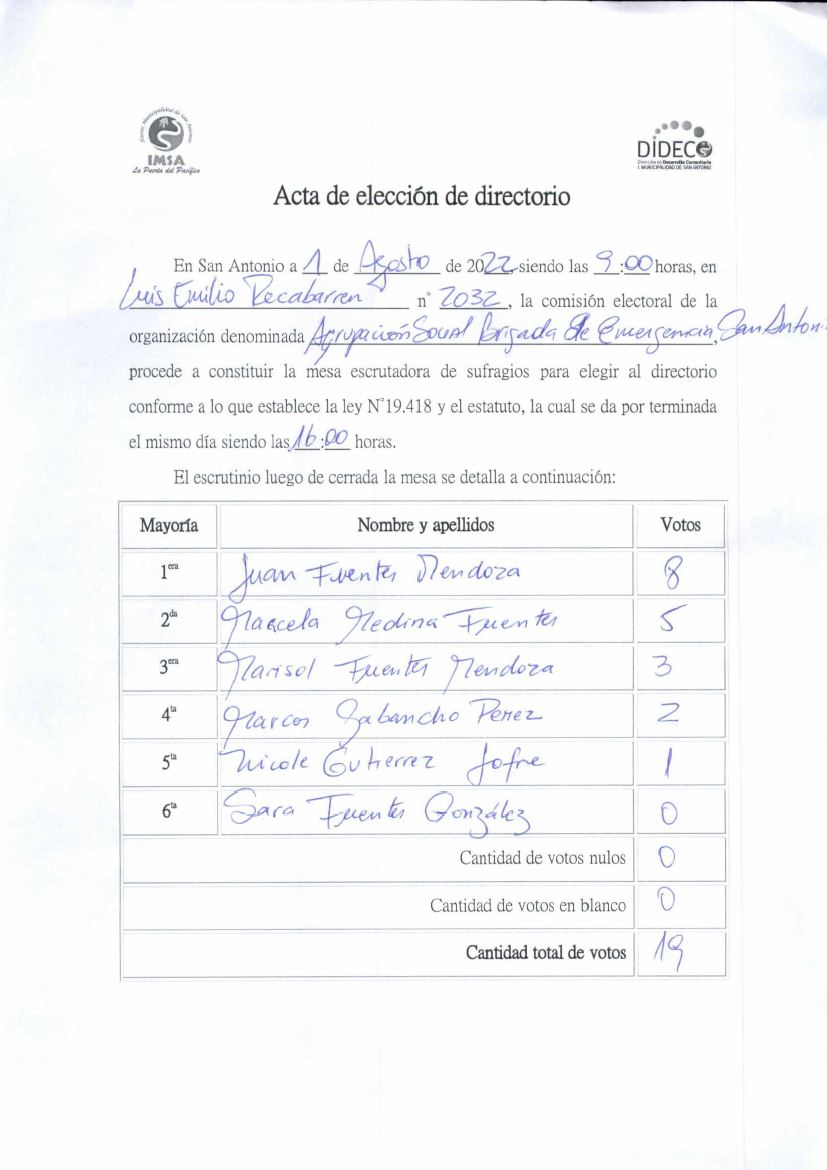 Ilustre Municipalidad de San Antonio
IMSA
La Puerta del Pacífico
DIDECO
Dirección de Desarrollo Comunitario
I. MUNICIPALIDAD DE SAN ANTONIO
Acta de elección de directorio
En San Antonio a 1 de Agosto de 2022, siendo las 9:00 horas, en
Luis Emilio Recabarren n° 2032, la comisión electoral de la
organización denominada Agrupación Social Brigada de Emergencia, San Antoni
procede a constituir la mesa escrutadora de sufragios para elegir al directorio
conforme a lo que establece la ley N°19.418 y el estatuto, la cual se da por terminada
el mismo día siendo las 16:00 horas.
El escrutinio luego de cerrada la mesa se detalla a continuación:
Mayoría Nombre y apellidos Votos
1era Juan Fuentes Mendoza 8
2da Marcela Medina Fuentes 5
3era Marisol Fuentes Mendoza 3
4ta Marcos Gabancho Pérez 2
5ta Nicole Gutierrez Jofre 1
6ta Sara Fuentes González 0
Cantidad de votos nulos 0
Cantidad de votos en blanco 0
Cantidad total de votos 19